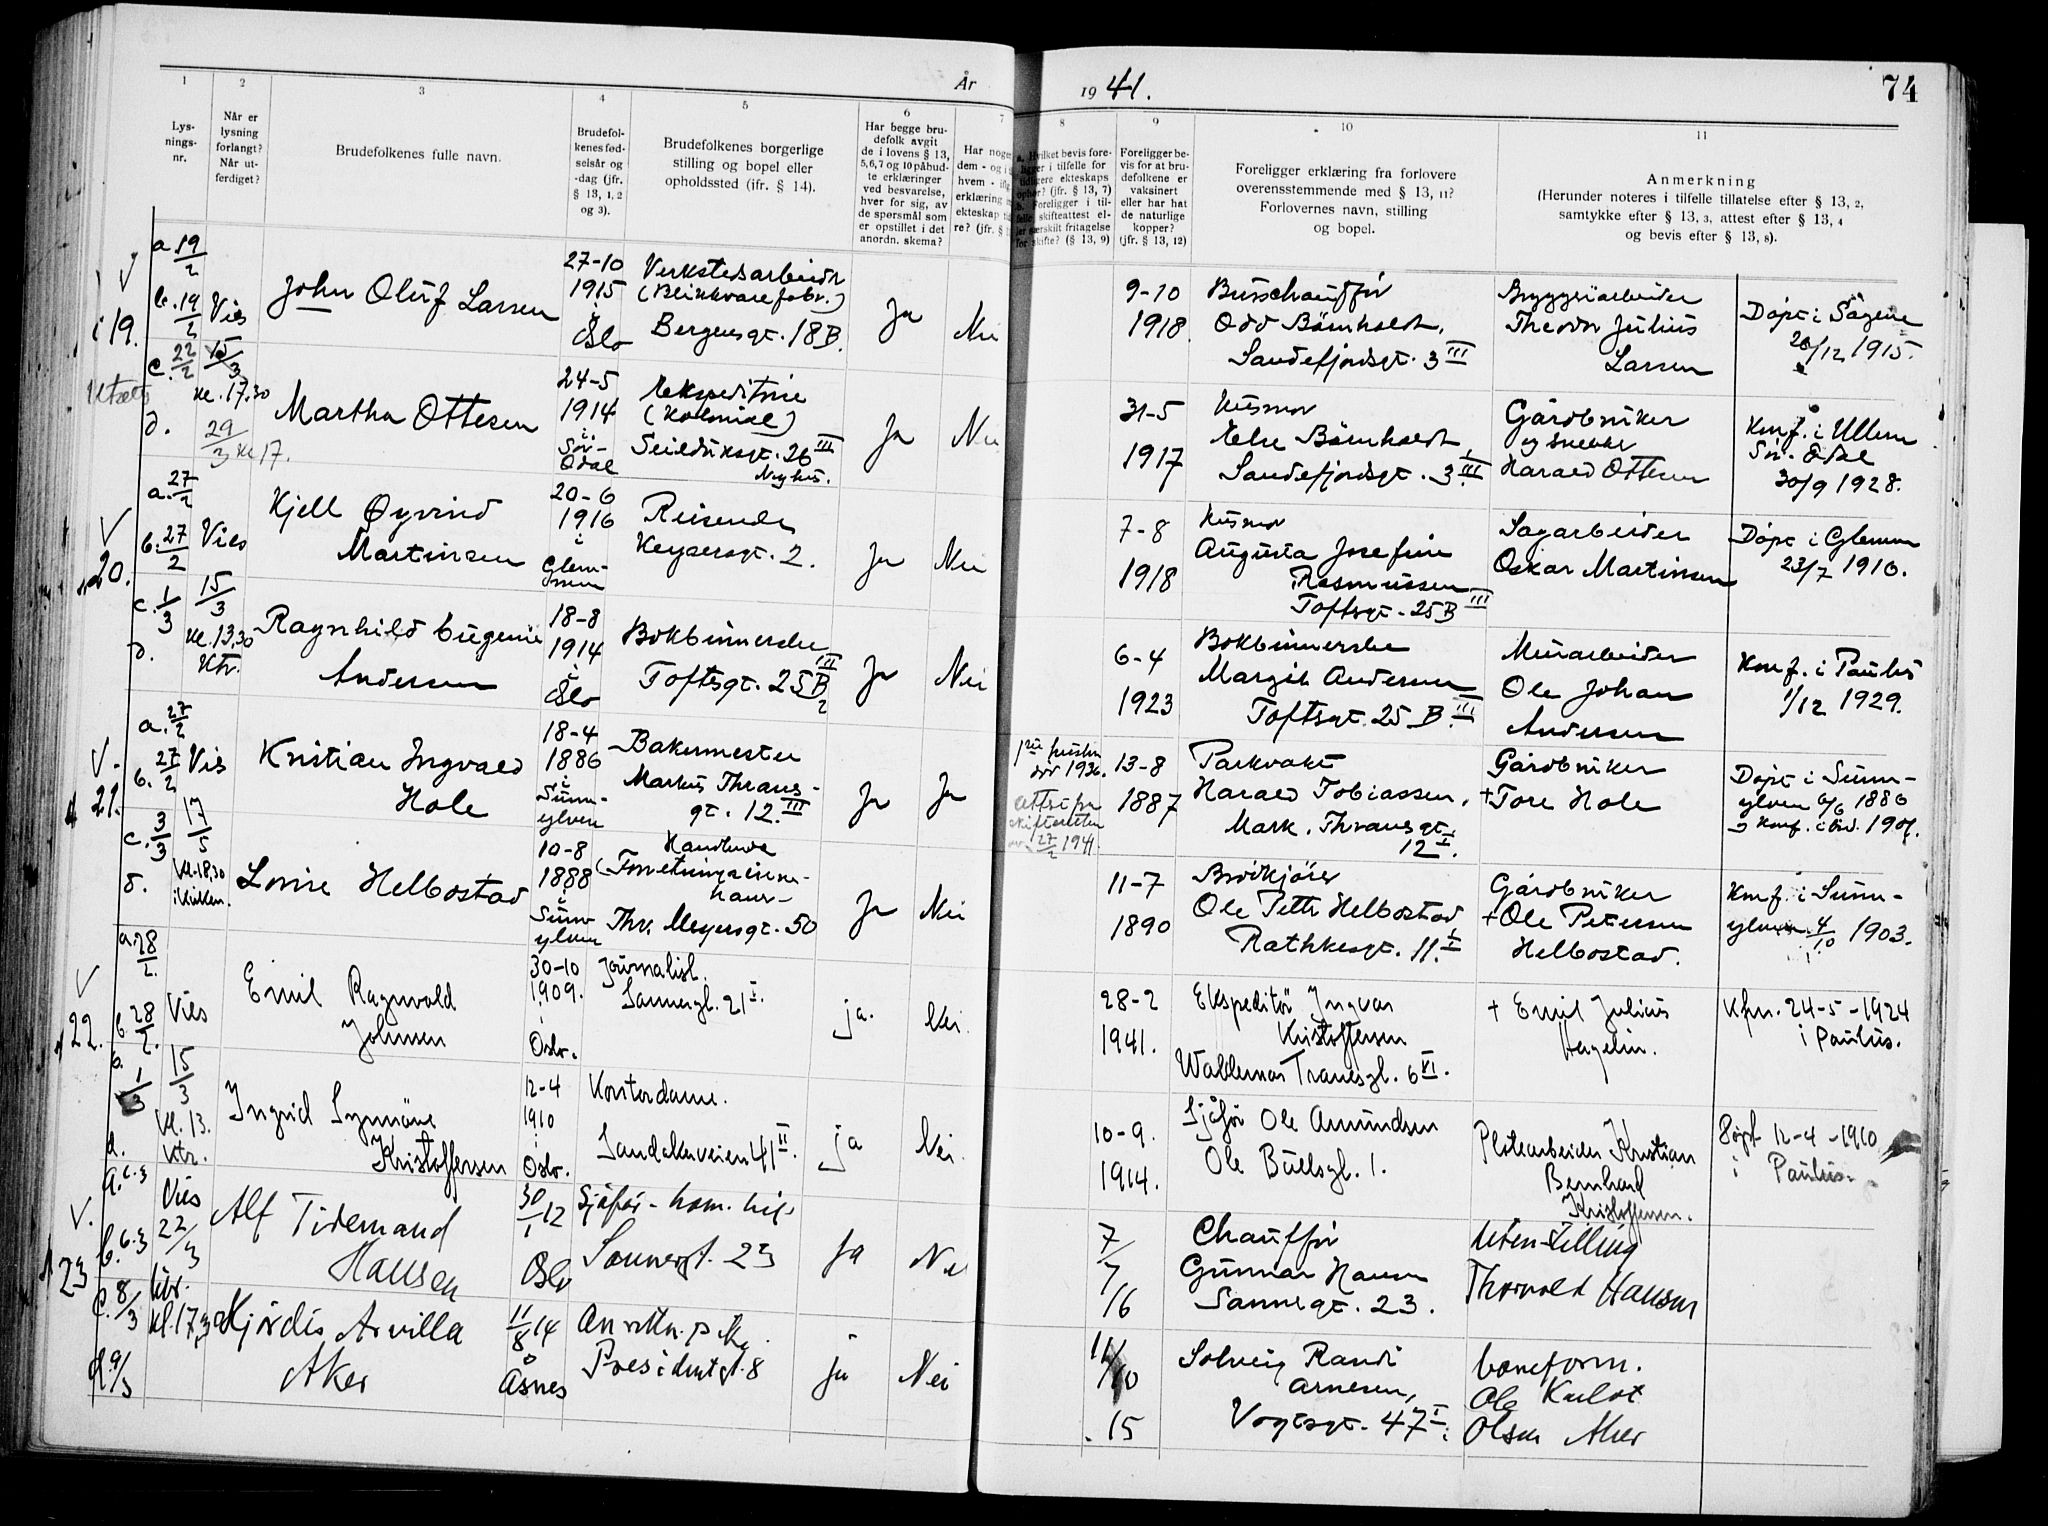 År
19 41.
74
1
2
3
4
5
6
7
8
9
10
11
Lys-
nings-
nr.
Når er
lysning
forlangt?
Når ut-
ferdiget?
Brudefolkenes fulle navn.
Brudefol-
kenes fød-
selsår og
-dag (jfr.
§ 13, 1, 2
og 3).
Brudefolkenes borgerlige
stilling og bopel eller
opholdssted (ifr. § 14).
Har begge bru-
defolk avgit
de i lovens § 13,
5, 6, 7 og 10 påbud-
te erklæringer
ved besvarelse,
hver for sig, av
de spørsmål som
er opstillet i det
anordn. skema?
Har nogen
dem - og i
hvem -
erklæring
ekteskap
re? (jfr. §
a. Hvilket bevis fore-
ligger i tilfelle for
tidligere ekteskaps
ophør? (jfr. § 13, 7)
b. Foreligger i til-
felle skifteattest el-
ler særskilt fritagelse
for skifte? (§ 13, 9)
Foreligger be-
vis for at bru-
defolkene er
vaksinert
eller har hat
de naturlige
kopper?
(jfr. § 13, 12)
Foreligger erklæring fra forlovere
overensstemmende med § 13, 11?
Forlovernes navn, stilling
og bopel.
Anmerkning
(Herunder noteres i tilfelle tillatelse efter § 13, 2,
samtykke efter § 13, 3, attest efter § 13, 4
og bevis efter § 13, 8).
19.
a. 19/2
b. 19/2
c. 22/2
d.
Vies
15/3
kl. 17,30
29/3 kl 17.
John Oluf Larsen
27-10
1915
i
Oslo
Verkstedsarbeider
(Blikkvarefabr.)
Bergensgt. 18B.
Ja
Nei
9-10
1918
Busschauffør
Odd Børnholdt,
Sandefjordsgt. 3 III
Bryggeriarbeider
Theodor Julius
Larsen
Døpt i Sagene
26/12 1915.
Martha Ottesen
24-5
1914
i
Sør-
Odal
Ekspeditrise
(Kolonial)
Seilduksgt. 26 III
Nyhus.
Ja
Nei
31-5
1917
Husmor
Else Børnholdt,
Sandefjordsgt. 3 III
Gårdbruker
og snekker
Harald Ottesen
Konf. i Ullern
Sør-Odal
30/9 1928.
20.
a. 27/2
b. 27/2
c. 1/3
d.
Vies
15/3
kl. 13.30
Ktr.
Kjell Øyvind
Martinsen
20-6
1916
i
Glem-
men
Reisende
Keysersgt. 2.
Ja
Nei
7-8
1918
Husmor
Augusta Josefine
Rasmussen
Toftesgt. 25B III
Sagarbeider
Oskar Martinsen
Døpt i Glemmen
23/7 1916.
Ragnhild Eugenie
Andersen
18-8
1914
i
Oslo
Bokbinnerske
Toftesgt. 25B III
Ja
Nei
6-4
1923
Bokbinnerske
Margit Andersen
Toftesgt. 25 B. III
Murarbeider
Ole Johan
Andersen
Konf. i Paulus
1/12 1929.
21.
a. 27/2
b. 27/2
c. 3/3
d.
Vies
17/5
kl. 18,30
i kirken.
Kristian Ingvald
Hole
18-4
1886
i
Sunn-
ylven
Bakermester
Markus Thranes-
gt. 12. III
Ja
Ja
døv 1936.
27/2 1941.
13-8
1887
Parkvakt
Harald Tobiassen,
Mark. Thranesgt.
12 I.
Gårdbruker
+Tore Hole
Døpt i Sunn-
ylven 6/6 1886
Lovise Helbostad
10-8
1888
i
Sunn-
ylven
Handlende
Thv. Meyersgt. 50
Ja
Nei
11-7
1890
Brødkjører
Ole Petter Helbostad,
Rathkesgt. 11. I
Gårdbruker
+Ole Petersen
Helbostad.
Konf. i Sunn-
ylven 4/10 1903.
22.
a. 28/2.
b. 28/2.
c.
1/3
d.
Vies
15/3
Kl. 13.
Ktr.
Emil Ragnvald
Johnsen
30-10
1909.
i
Oslo.
Journalist.
Sannergt. 21 I.
ja.
Nei.
28-2
1941.
Ekspeditør Ingvar
Kristoffersen
Waldemar Thranesgt. 6 VI.
+ Emil Julius
Hagelin.
Kfm. 24-5-1924
i Paulus.
Ingrid Synnøve
Kristoffersen
12-4
1910
i
Oslo.
Kontordame.
Sandakerveien 41 II.
ja
Nei.
10-9.
1914.
Sjåfør Ole Amundsen
Ole Bullsgt. 1.
Platearbeider Kristian
Bernhard
Kristoffersen.
Døpt 12-4-1910
i Paulus.
23
a. 6.3
b. 6.3
c. 8/3
d. 9/3
Vies
22/3
ktr.
kl. 17,30
Alf Tidemand
Hansen
30/1 12
Oslo
Sjåfør
Sannergt. 23
ja
Nei
7/7
16
Chauffør
Gunnar Hansen
Sannergt. 23.
Uten stilling
Thorvald Hansen
Hjørdis Arvilla
Aker
11/8 14
Åsnes
Presidentgt. 8
ja
Nei
15
Solveig Randi
Arnesen,
Vogtsgt. 47 I.
baneform.
Ole Kulot
Olsen Aker